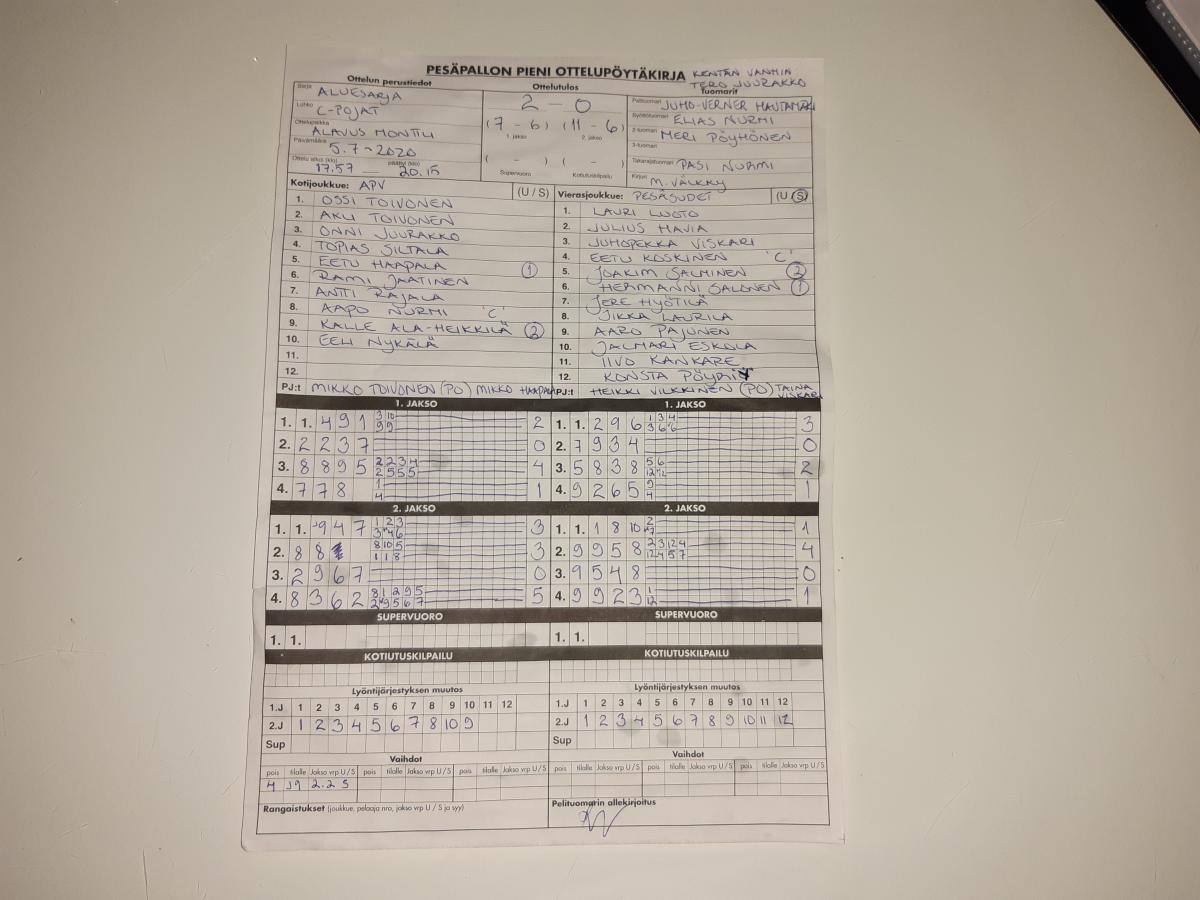 PESÄPALLON PIENI OTTELUPÖYTÄKIRJA
KENTÄN VANHIN
TERO JUURAKKO
Ottelun perustiedot
Ottelutulos
Tuomarit
Sarja ALUESARJA
Lohko C-POJAT
Ottelupaikka ALAVUS MONTTU
Päivämäärä 5.7-2020
Ottelu alkoi (klo) 17.57 päättyi (klo) 20.15
2 - 0
(7 - 6) (11 - 6)
1. jakso 2. jakso
( - ) ( - )
Supervuoro Kotiutuskilpailu
Pelituomari JUHO-VERNER HAUTAMÄKI
Syöttötuomari ELIAS NURMI
2-tuomari MERI PÖYHÖNEN
3-tuomari
Takarajatuomari PASI NURMI
Kirjuri M. VÄLKKY
Kotijoukkue: APV (U / S)
1. OSSI TOIVONEN
2. AKU TOIVONEN
3. ONNI JUURAKKO
4. TOPIAS SILTALA
5. EETU HAAPALA 1
6. RAMI JAATINEN
7. ANTTI RAJALA
8. AAPO NURMI 'C'
9. KALLE ALA-HEIKKILÄ 2
10. EELI NYKÄLÄ
11.
12.
PJ:t MIKKO TOIVONEN (PO) MIKKO HAAPALA
Vierasjoukkue: PESÄSUDET (U / S)
1. LAURI LUOTO
2. JULIUS HAVIA
3. JUHOPEKKA VISKARI
4. EETU KOSKINEN 'C'
5. JOAKIM SALMINEN 2
6. HERMANNI SALONEN 1
7. JERE HYÖTILÄ
8. JIKKA LAURILA
9. AARO PAJUNEN
10. JALMARI ESKOLA
11. IIVO KANKARE
12. KONSTA
PJ:t HEIKKI VILKKINEN (PO) TAINA VISKARI
1. JAKSO
1. 1. 4 9 1 3 10 2
9 9
2. 2 2 3 7 0
3. 8 8 9 5 2 2 3 4 4
2 5 5 5
4. 7 7 8 1 1
4
1. JAKSO
1. 1. 2 9 6 1 3 4 3
3 6 6
2. 7 9 3 4 0
3. 5 8 3 8 5 6 2
12 12
4. 9 2 6 5 9 1
4
2. JAKSO
1. 1. 9 4 7 1 2 3 3
3 4 6
2. 8 8 8 10 5 3
1 1 8
3. 2 9 6 7 0
4. 8 3 6 2 8 1 2 9 5 5
2 9 5 6 7
2. JAKSO
1. 1. 1 8 10 2 1
7
2. 9 9 5 8 2 3 12 4 4
12 4 5 7
3. 9 5 4 8 0
4. 9 9 2 3 1 1
12
SUPERVUORO
1. 1.
SUPERVUORO
1. 1.
KOTIUTUSKILPAILU
KOTIUTUSKILPAILU
Lyöntijärjestyksen muutos
1.J 1 2 3 4 5 6 7 8 9 10 11 12
2.J 1 2 3 4 5 6 7 8 10 9
Sup
Lyöntijärjestyksen muutos
1.J 1 2 3 4 5 6 7 8 9 10 11 12
2.J 1 2 3 4 5 6 7 8 9 10 11 12
Sup
Vaihdot
pois tilalle Jakso vrp U / S pois tilalle Jakso vrp U / S pois tilalle Jakso vrp U / S
4 J9 2.2 S
Vaihdot
pois tilalle Jakso vrp U / S pois tilalle Jakso vrp U / S pois tilalle Jakso vrp U / S
Rangaistukset (joukkue, pelaaja nro, jakso vrp U / S ja syy)
Pelituomarin allekirjoitus